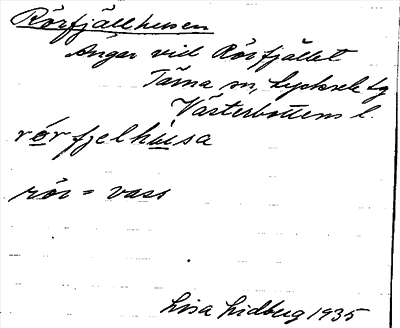 Rörfjällhusen
Ängar vid Rörfjället
Tärna sn, Lycksele lg
Västerbottens l.
rö́rfjelhúsa
rör = vass
Lisa Lidberg 1935